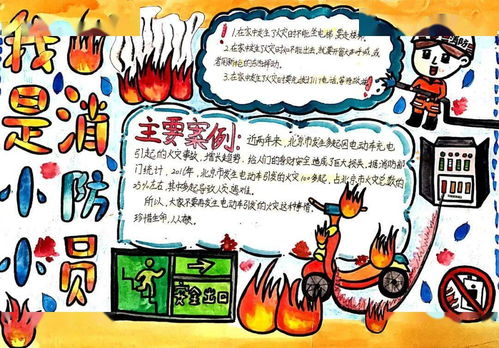 我是小小
消防员
1.在家中发生了火灾的不能坐电梯,要走楼梯。
2.在家中发生了火灾时如不能出去,就要开窗大声呼喊,或
者用鲜艳的东西挥动。
3.在家中发生了火灾时要先拨打119电话,等待救援。
主要案例: 近两年来,北京市发生多起因电动车充电
引起的火灾事故,增长趋势,给人们的身财安全造成了巨大损失,据消防部
门统计,2016年,北京市发生电动车引发的火灾100多起,占北京市火灾总数的
5%左右,其中多起导致人员遇难。
所以,大家不要再发生电动车引发的火灾这种事情。
珍惜生命,人人有责。
安全出口